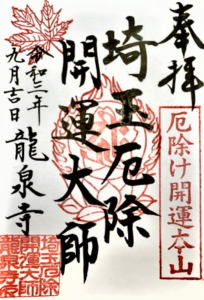 奉拝
厄除け開運本山
埼玉厄除
開運大師
令和三年
九月吉日
龍泉寺
埼玉厄除
開運大師
龍泉寺